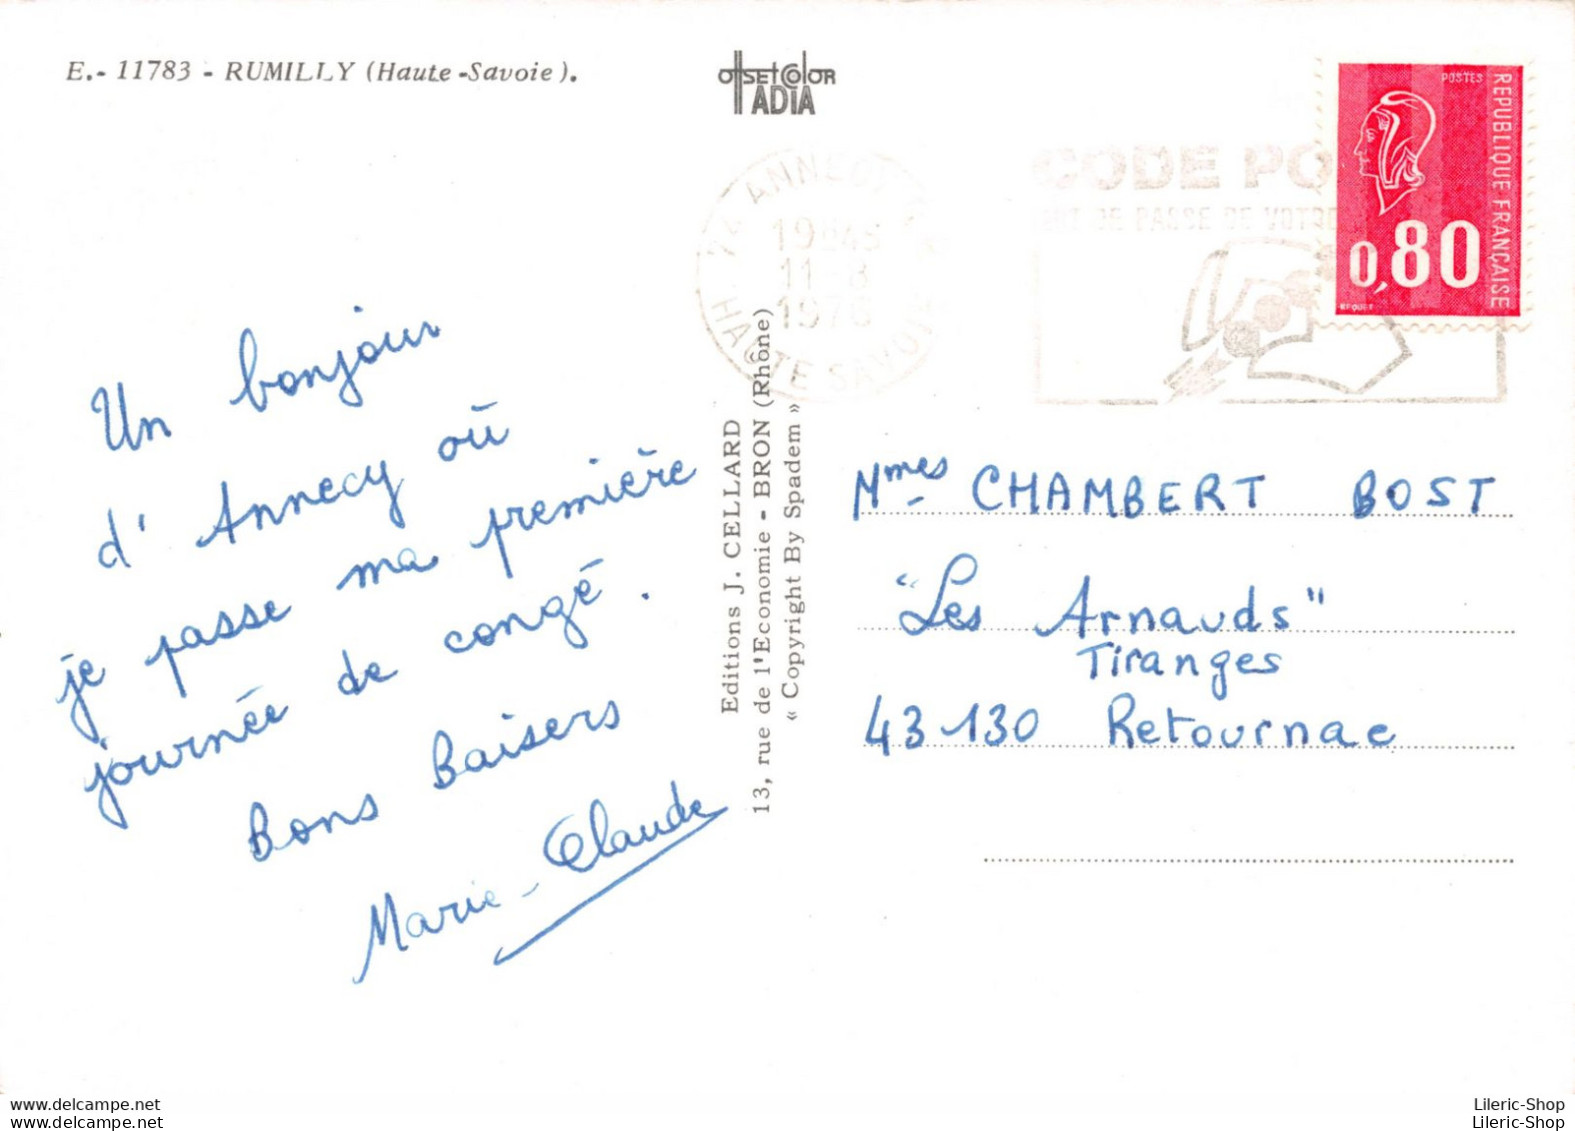 E.- 11783 - RUMILLY (Haute-Savoie).
OFFSET COLOR
ADIA
CODE PO
DE PASSE DE VOTRE
ANNECY
19H45
11-8
1976
HAUTE SAVOIE
POSTES
REPUBLIQUE FRANÇAISE
0,80
Un bonjour
d'Annecy où
je passe ma première
journée de congé.
Bons Baisers
Marie-Claude
Editions J. CELLARD
13, rue de l'Economie - BRON (Rhône)
« Copyright By Spadem »
Mmes CHAMBERT BOST
"Les Arnauds"
Tiranges
43130 Retournac
Lileric-Shop
Lileric-Shop
Lileric-Shop
Lileric-Shop